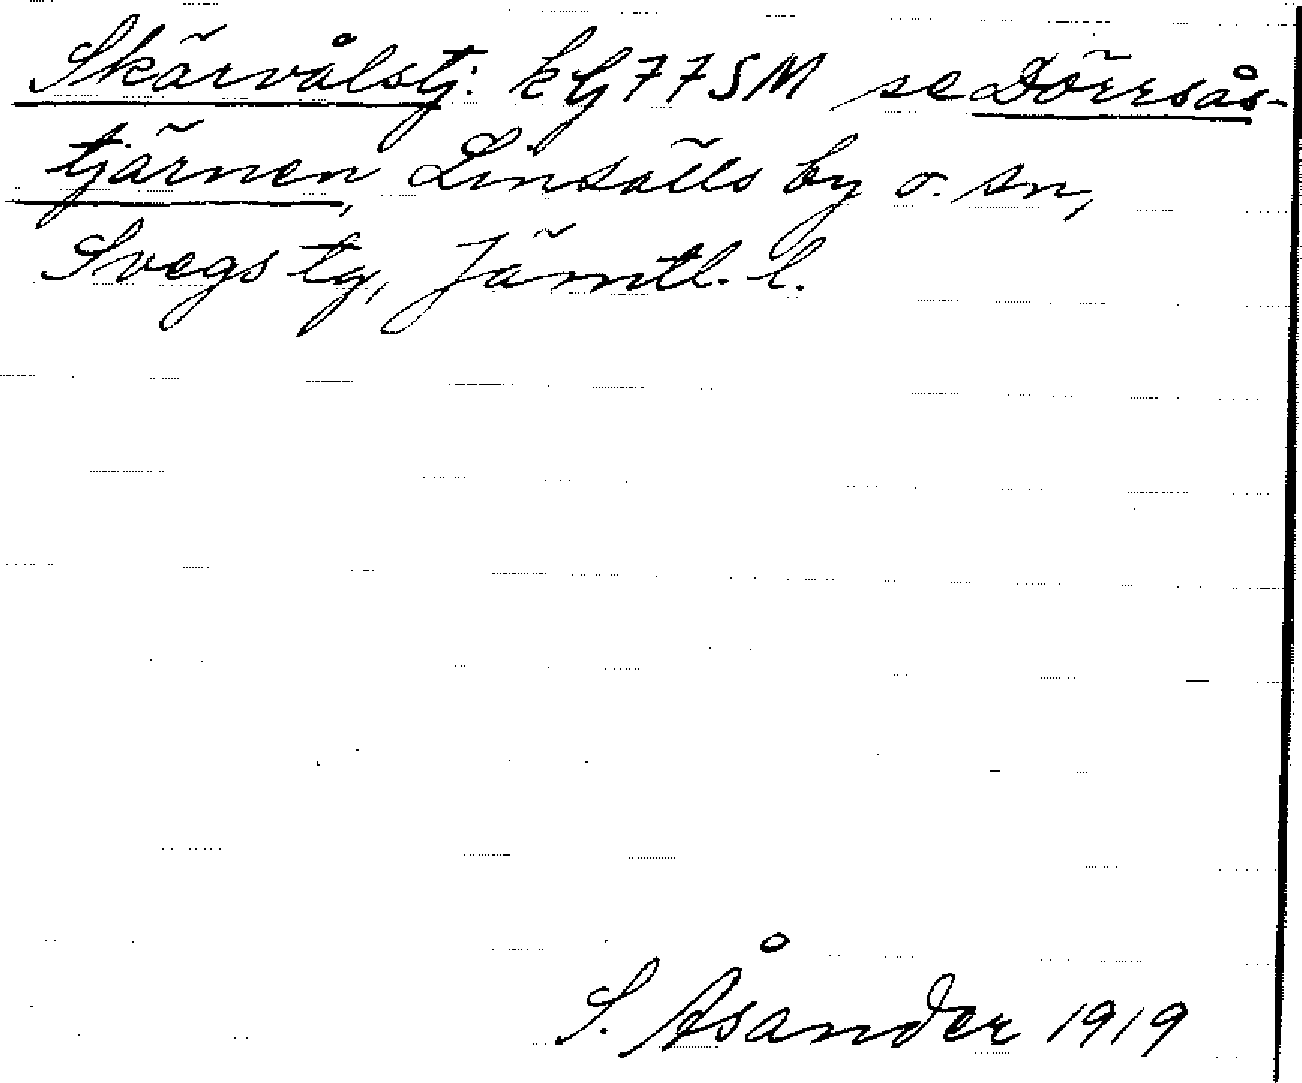 Skärvålstj: kG77SM se Dörrsås-
tjärnen, Linsälls by o. sn,
Svegs tg, Jämtl. l.
S. Åsander 1919